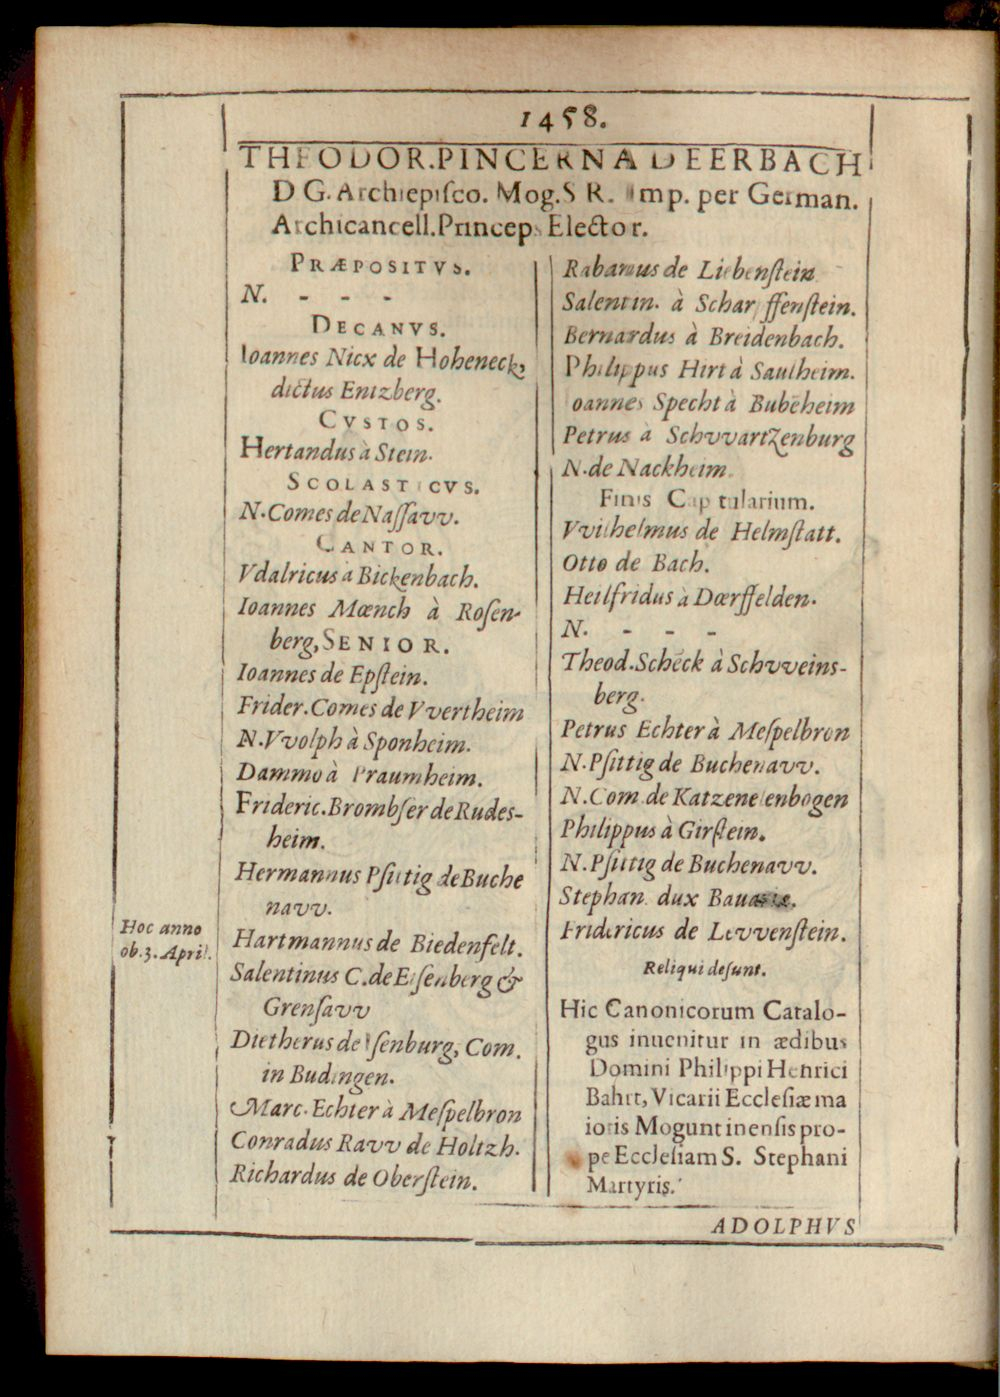 1458.
THEODOR. PINCERNA DE ERBACH
D G. Archiepiſco. Mog. S R. Imp. per German.
Archicancell. Princeps Elector.
PRÆPOSITVS.
N. - - -
DECANVS.
Ioannes Nicx de Hoheneck,
dictus Entzberg.
CVSTOS.
Hertandus à Stein.
SCOLASTICVS.
N. Comes de Naſſavv.
CANTOR.
Vdalricus à Bickenbach.
Ioannes Mœnch à Roſen-
berg, SENIOR.
Ioannes de Epſtein.
Frider. Comes de Vvertheim
N. Vvolph à Sponheim.
Dammo à Praumheim.
Frideric. Brombſer de Rudes-
heim.
Hermannus Pſittig de Buche
navv.
Hoc anno
ob. 3. April.
Hartmannus de Biedenfelt.
Salentinus C. de Eiſenberg &
Grenſavv
Dietherus de Iſenburg, Com.
in Budingen.
Marc. Echter à Meſpelbron
Conradus Ravv de Holtzh.
Richardus de Oberſtein.
Rabanus de Liebenſtein
Salentin. à Scharpffenſtein.
Bernardus à Breidenbach.
Philippus Hirt à Saulheim.
Ioannes Specht à Bubēheim
Petrus à Schvvartzenburg
N. de Nackheim.
Finis Capitularium.
Vvilhelmus de Helmſtatt.
Otto de Bach.
Heilfridus à Dœrffelden.
N. - - -
Theod. Schēck à Schvveins-
berg.
Petrus Echter à Meſpelbron
N. Pſittig de Buchenavv.
N. Com. de Katzenelenbogen
Philippus à Girſtein.
N. Pſittig de Buchenavv.
Stephan. dux Bauariæ.
Fridericus de Levvenſtein.
Reliqui deſunt.
Hic Canonicorum Catalo-
gus inuenitur in ædibus
Domini Philippi Henrici
Bahrt, Vicarii Eccleſiæ ma
ioris Moguntinenſis pro-
pe Eccleſiam S. Stephani
Martyris.
ADOLPHVS